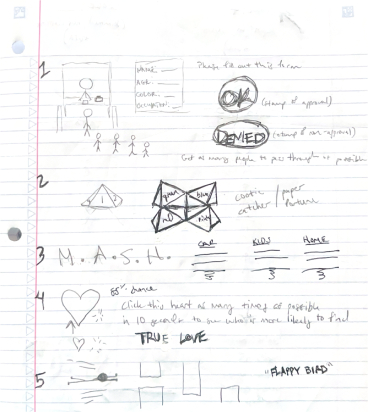 1
NAME: 
AGE: 
COLOR: 
Please fill out this form
OK (stamp of approval)
DENIED (stamp of non-approval)
Get as many people to pass through as possible
2
1
green blue
red pink
cootie / paper
catcher / fortune
3 M.A.S.H.
CAR KIDS HOME
4
85% chance
Click this heart as many times as possible
in 10 seconds to see who is more likely to find
TRUE LOVE
5
"FLAPPY BIRD"